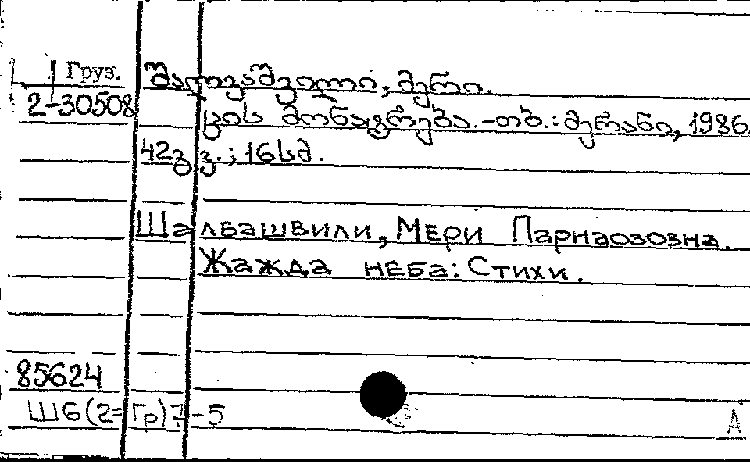 Груз.
შალვაშვილი, მერი.
2-30508
ცის მონატრება. -თბ.: მერანი, 1986.
42გვ.; 16სმ.
Шалвашвили, Мери Парнаозовна.
Жажда неба: Стихи.
85624
Ш6(2=Гр)7-5
А